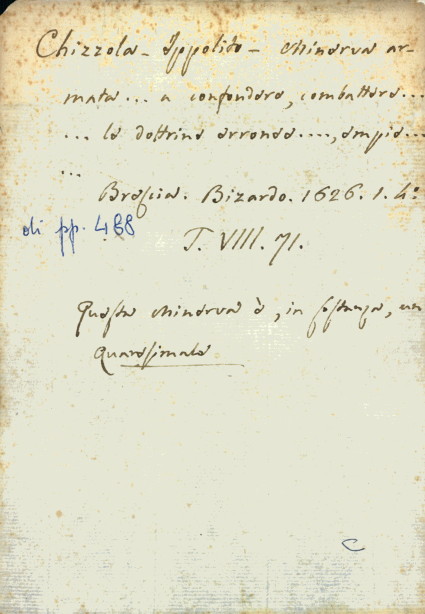 Chizzola - Ippolito - Minerva ar-
mata ... a confondere, combattere ...
... le dottrine erronee ...., empie ...
...
Brescia. Bizardo. 1626. 1. 4°
di pp. 488
T. VIII. 71.
Questa Minerva è, in sostanza, un
Quaresimale
C